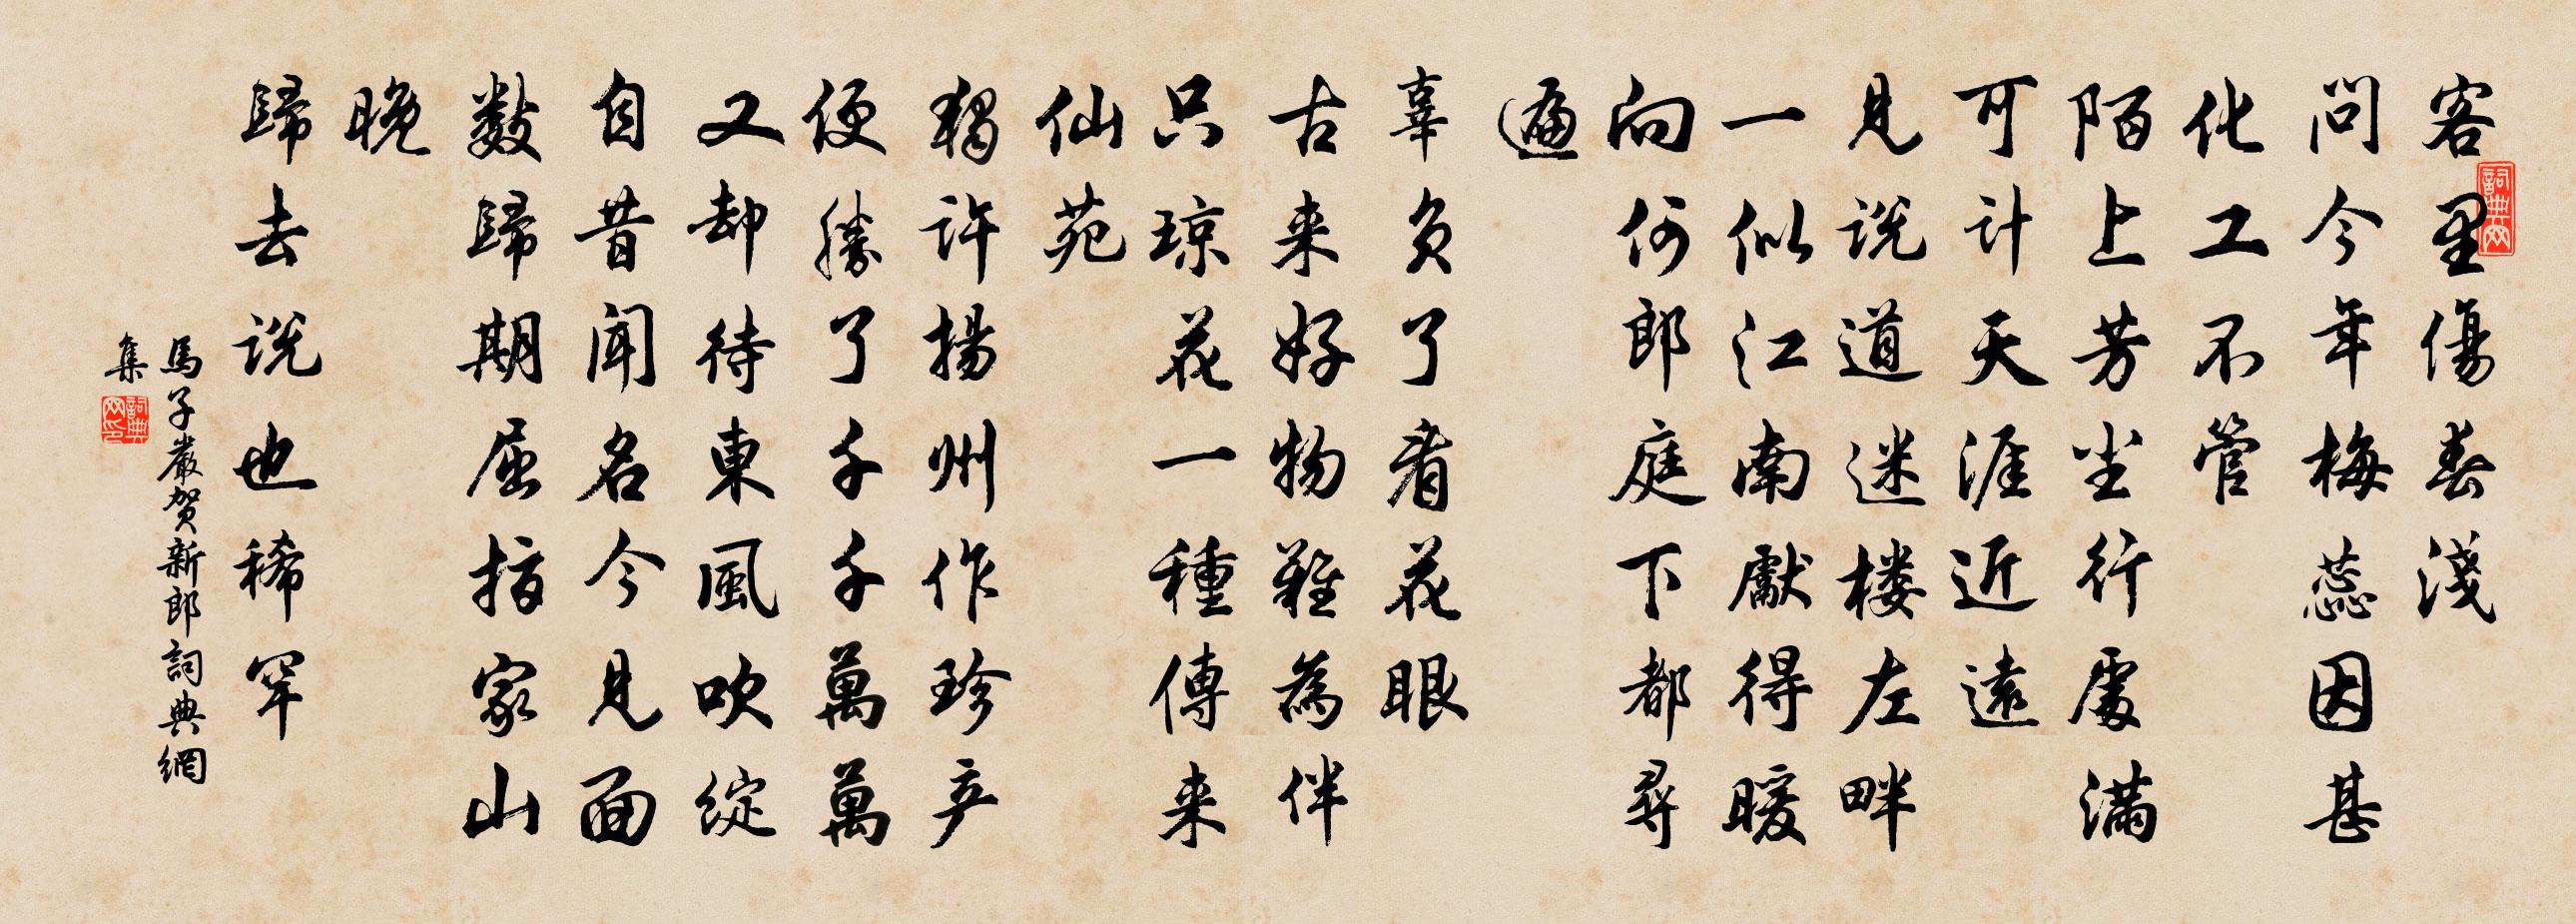 客里傷春淺
問今年梅蕊因甚
化工不管
陌上芳尘行處滿
可计天涯近遠
見説道迷楼左畔
一似江南獻得暖
向何郎庭下都尋
遍
辜負了看花眼
古来好物難為伴
只琼花一種傳来
仙苑
獨许揚州作珍产
便勝了千千萬萬
又却待東風吹綻
自昔聞名今見面
数歸期屈指家山
晚
歸去説也稀罕
馬子嚴贺新郎詞典網
集
詞典网
詞典网印